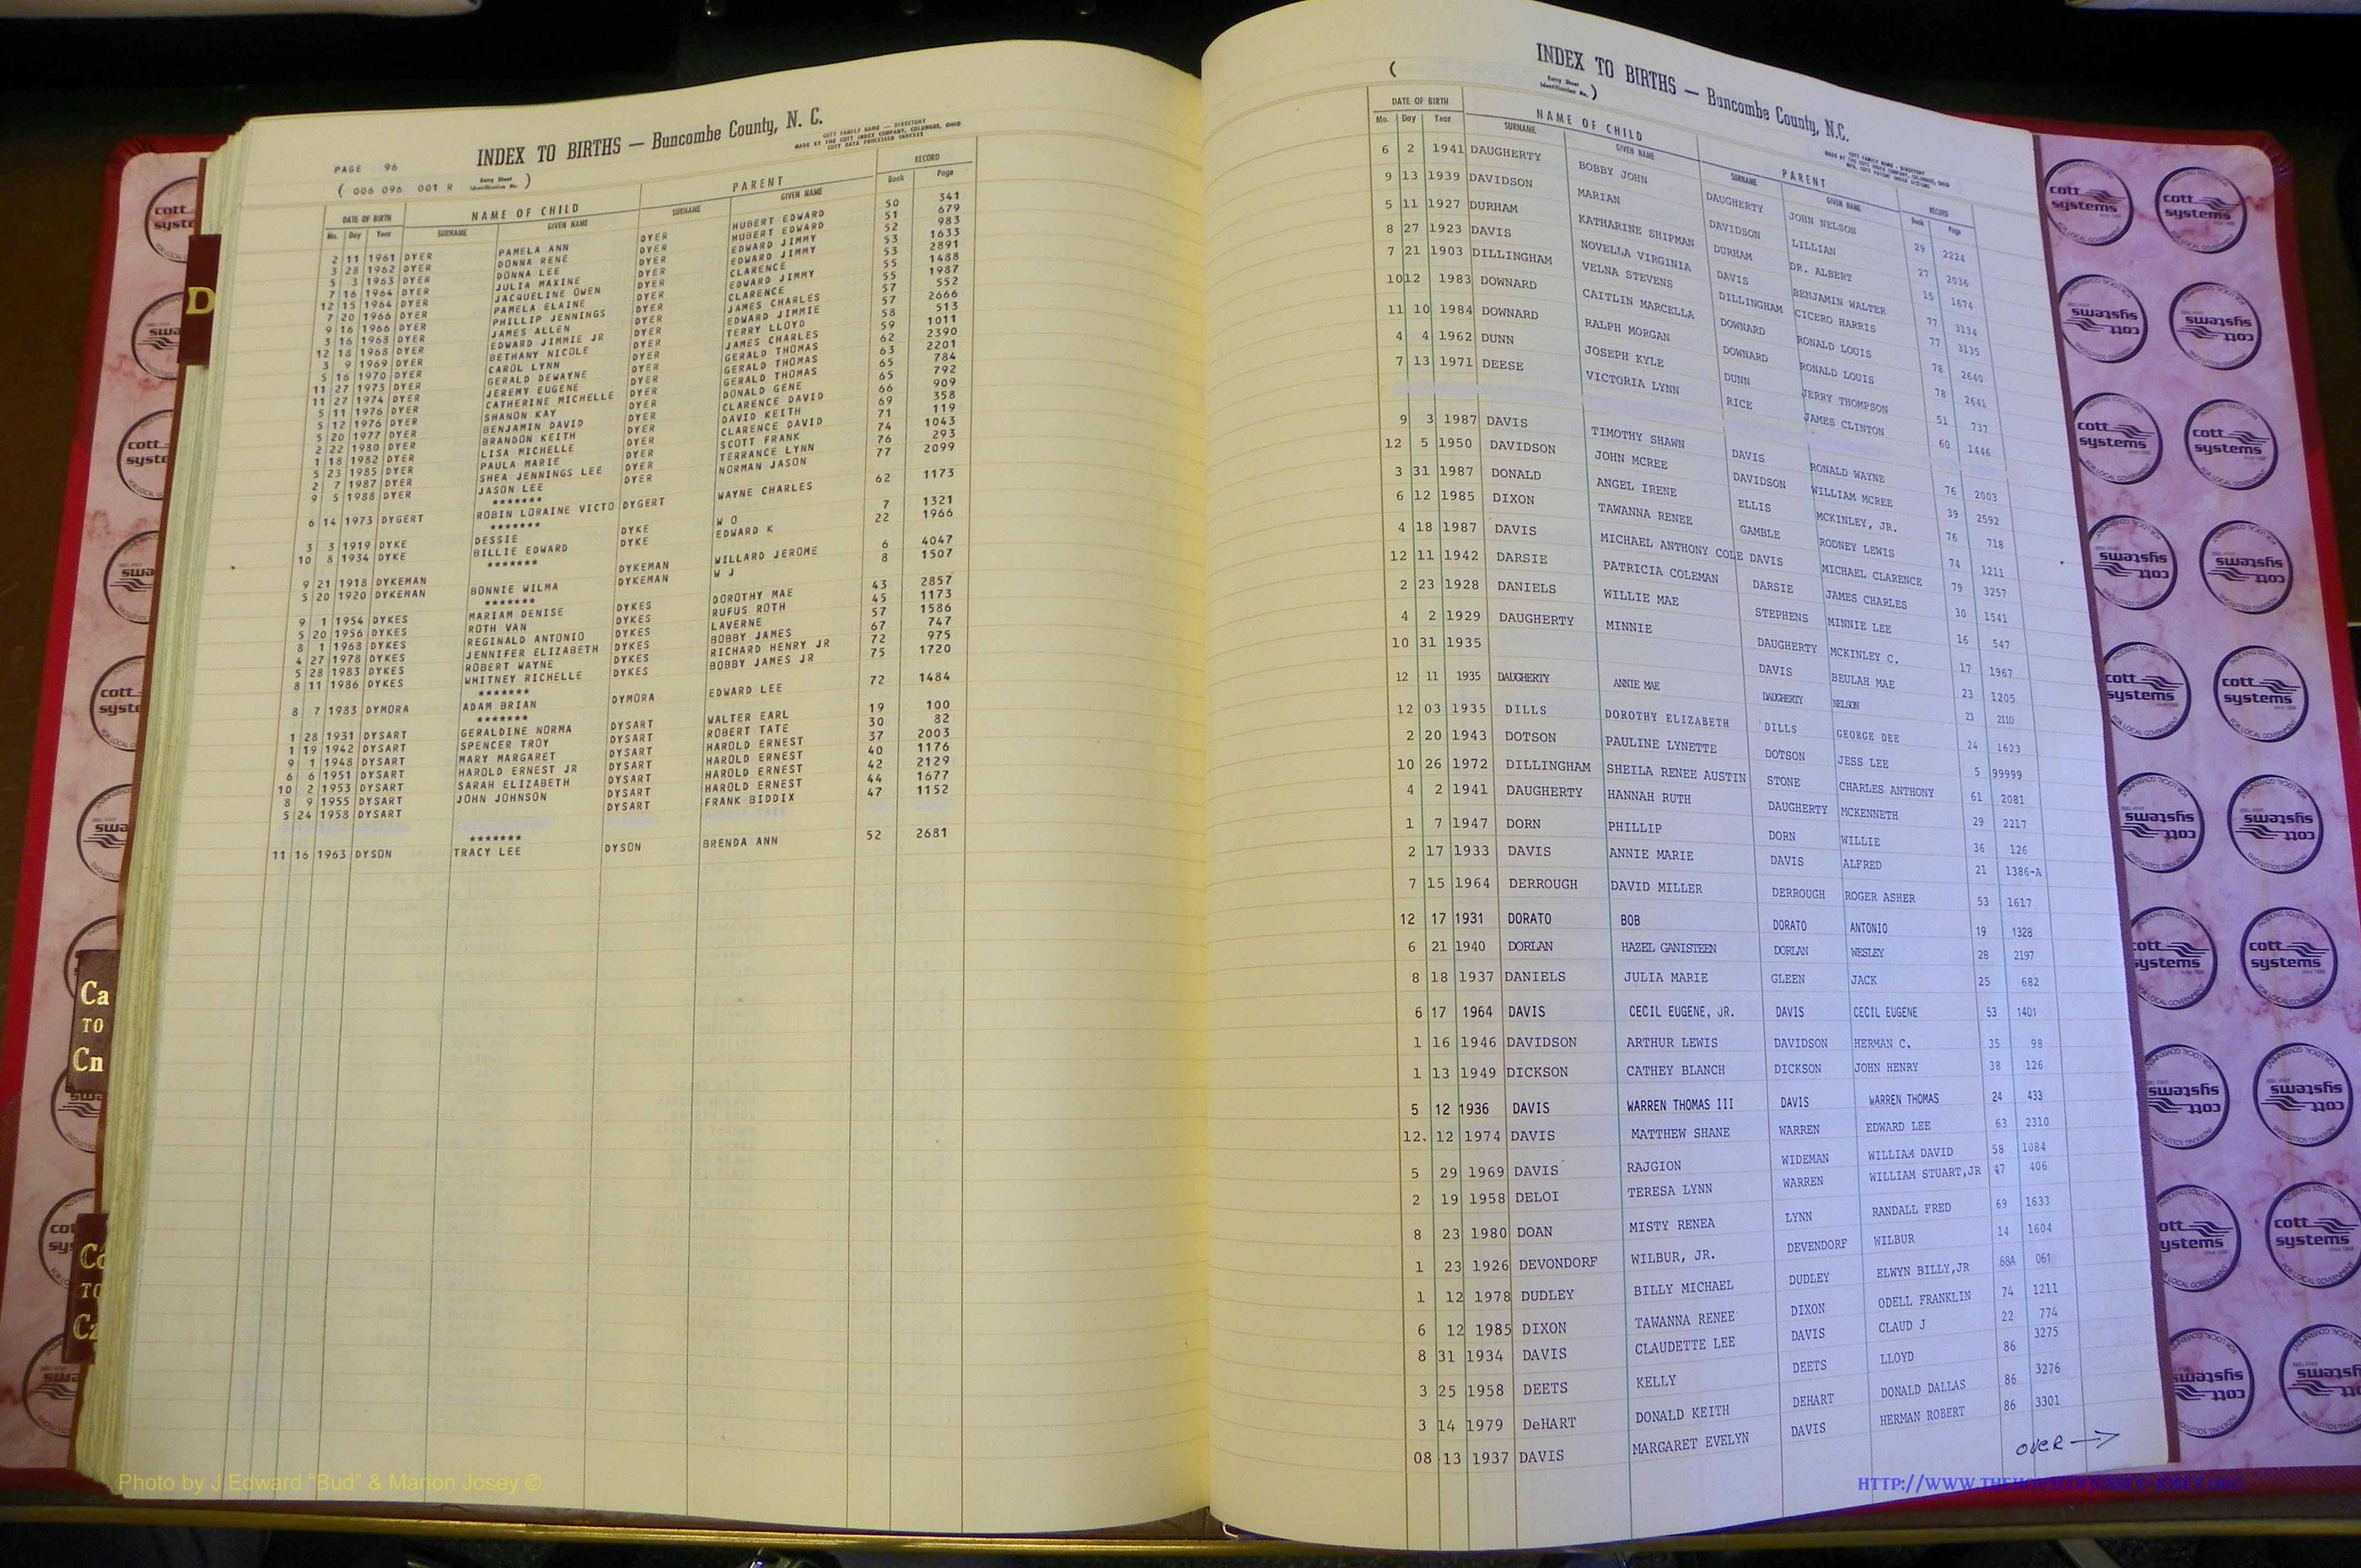 PAGE 96
INDEX TO BIRTHS — Buncombe County, N. C.
COTT FAMILY NAME — DIRECTORY
MADE BY THE COTT INDEX COMPANY, COLUMBUS, OHIO
COTT DATA PROCESSED INDEXES
( 006 096 001 R Entry Sheet Identification No. )
DATE OF BIRTH NAME OF CHILD PARENT RECORD
Mo. Day Year SURNAME GIVEN NAME SURNAME GIVEN NAME Book Page
2 11 1961 DYER PAMELA ANN DYER HUBERT EDWARD 50 341
3 28 1962 DYER DONNA RENE DYER HUBERT EDWARD 51 679
5 3 1963 DYER DONNA LEE DYER EDWARD JIMMY 52 983
7 16 1964 DYER JULIA MAXINE DYER EDWARD JIMMY 53 1633
12 15 1964 DYER JACQUELINE OWEN DYER CLARENCE 53 2891
7 20 1966 DYER PAMELA ELAINE DYER EDWARD JIMMY 55 1488
9 16 1966 DYER PHILLIP JENNINGS DYER CLARENCE 55 1987
3 16 1968 DYER JAMES ALLEN DYER JAMES CHARLES 57 552
12 18 1968 DYER EDWARD JIMMIE JR DYER EDWARD JIMMIE 57 2666
3 9 1969 DYER BETHANY NICOLE DYER TERRY LLOYD 58 513
5 16 1970 DYER CAROL LYNN DYER JAMES CHARLES 59 1011
11 27 1973 DYER GERALD DEWAYNE DYER GERALD THOMAS 62 2390
11 27 1974 DYER JEREMY EUGENE DYER GERALD THOMAS 63 2201
5 11 1976 DYER CATHERINE MICHELLE DYER GERALD THOMAS 65 784
5 12 1976 DYER SHANON KAY DYER DONALD GENE 65 792
5 20 1977 DYER BENJAMIN DAVID DYER CLARENCE DAVID 66 909
2 22 1980 DYER BRANDON KEITH DYER DAVID KEITH 69 358
1 18 1982 DYER LISA MICHELLE DYER CLARENCE DAVID 71 119
5 23 1985 DYER PAULA MARIE DYER SCOTT FRANK 74 1043
2 7 1987 DYER SHEA JENNINGS LEE DYER TERRANCE LYNN 76 293
9 5 1988 DYER JASON LEE DYER NORMAN JASON 77 2099
*******
6 14 1973 DYGERT ROBIN LORAINE VICTO DYGERT WAYNE CHARLES 62 1173
*******
3 3 1919 DYKE DESSIE DYKE W O 7 1321
10 8 1934 DYKE BILLIE EDWARD DYKE EDWARD K 22 1966
*******
9 21 1918 DYKEMAN DYKEMAN WILLARD JEROME 6 4047
5 20 1920 DYKEMAN BONNIE WILMA DYKEMAN W J 8 1507
*******
9 1 1954 DYKES MARIAM DENISE DYKES DOROTHY MAE 43 2857
5 20 1956 DYKES ROTH VAN DYKES RUFUS ROTH 45 1173
8 1 1968 DYKES REGINALD ANTONIO DYKES LAVERNE 57 1586
4 27 1978 DYKES JENNIFER ELIZABETH DYKES BOBBY JAMES 67 747
5 28 1983 DYKES ROBERT WAYNE DYKES RICHARD HENRY JR 72 975
8 11 1986 DYKES WHITNEY RICHELLE DYKES BOBBY JAMES JR 75 1720
*******
8 7 1983 DYMORA ADAM BRIAN DYMORA EDWARD LEE 72 1484
*******
1 28 1931 DYSART GERALDINE NORMA DYSART WALTER EARL 19 100
1 19 1942 DYSART SPENCER TROY DYSART ROBERT TATE 30 82
9 1 1948 DYSART MARY MARGARET DYSART HAROLD ERNEST 37 2003
6 6 1951 DYSART HAROLD ERNEST JR DYSART HAROLD ERNEST 40 1176
10 2 1953 DYSART SARAH ELIZABETH DYSART HAROLD ERNEST 42 2129
8 9 1955 DYSART JOHN JOHNSON DYSART HAROLD ERNEST 44 1677
5 24 1958 DYSART DYSART FRANK BIDDIX 47 1152
*******
11 16 1963 DYSON TRACY LEE DYSON BRENDA ANN 52 2681
D
Ca
TO
Cn
TO
INDEX TO BIRTHS — Buncombe County, N.C.
( Entry Sheet Identification No. )
COTT FAMILY NAME — DIRECTORY
MADE BY THE COTT INDEX COMPANY, COLUMBUS, OHIO
DATE OF BIRTH NAME OF CHILD PARENT RECORD
Mo. Day Year SURNAME GIVEN NAME SURNAME GIVEN NAME Book Page
6 2 1941 DAUGHERTY BOBBY JOHN DAUGHERTY JOHN NELSON 29 2224
9 13 1939 DAVIDSON MARIAN DAVIDSON LILLIAN 27 2036
5 11 1927 DURHAM KATHARINE SHIPMAN DURHAM DR. ALBERT 15 1674
8 27 1923 DAVIS NOVELLA VIRGINIA DAVIS BENJAMIN WALTER 77 3134
7 21 1903 DILLINGHAM VELNA STEVENS DILLINGHAM CICERO HARRIS 77 3135
10 12 1983 DOWNARD CAITLIN MARCELLA DOWNARD RONALD LOUIS 78 2640
11 10 1984 DOWNARD RALPH MORGAN DOWNARD RONALD LOUIS 78 2641
4 4 1962 DUNN JOSEPH KYLE DUNN JERRY THOMPSON 51 737
7 13 1971 DEESE VICTORIA LYNN RICE JAMES CLINTON 60 1446
9 3 1987 DAVIS TIMOTHY SHAWN DAVIS RONALD WAYNE 76 2003
12 5 1950 DAVIDSON JOHN MCREE DAVIDSON WILLIAM MCREE 39 2592
3 31 1987 DONALD ANGEL IRENE ELLIS MCKINLEY, JR. 76 718
6 12 1985 DIXON TAWANNA RENEE GAMBLE RODNEY LEWIS 74 1211
4 18 1987 DAVIS MICHAEL ANTHONY COLE DAVIS MICHAEL CLARENCE 79 3257
12 11 1942 DARSIE PATRICIA COLEMAN DARSIE JAMES CHARLES 30 1541
2 23 1928 DANIELS WILLIE MAE STEPHENS MINNIE LEE 16 547
4 2 1929 DAUGHERTY MINNIE DAUGHERTY MCKINLEY C. 17 1967
10 31 1935 DAVIS BEULAH MAE 23 1205
12 11 1935 DAUGHERTY ANNIE MAE DAUGHERTY NELSON 23 2110
12 03 1935 DILLS DOROTHY ELIZABETH DILLS GEORGE DEE 24 1623
2 20 1943 DOTSON PAULINE LYNETTE DOTSON JESS LEE 5 99999
10 26 1972 DILLINGHAM SHEILA RENEE AUSTIN STONE CHARLES ANTHONY 61 2081
4 2 1941 DAUGHERTY HANNAH RUTH DAUGHERTY MCKENNETH 29 2217
1 7 1947 DORN PHILLIP DORN WILLIE 36 126
2 17 1933 DAVIS ANNIE MARIE DAVIS ALFRED 21 1386-A
7 15 1964 DERROUGH DAVID MILLER DERROUGH ROGER ASHER 53 1617
12 17 1931 DORATO BOB DORATO ANTONIO 19 1328
6 21 1940 DORLAN HAZEL GANISTEEN DORLAN WESLEY 28 2197
8 18 1937 DANIELS JULIA MARIE GLEEN JACK 25 682
6 17 1964 DAVIS CECIL EUGENE, JR. DAVIS CECIL EUGENE 53 1401
1 16 1946 DAVIDSON ARTHUR LEWIS DAVIDSON HERMAN C. 35 98
1 13 1949 DICKSON CATHEY BLANCH DICKSON JOHN HENRY 38 126
5 12 1936 DAVIS WARREN THOMAS III DAVIS WARREN THOMAS 24 433
12. 12 1974 DAVIS MATTHEW SHANE WARREN EDWARD LEE 63 2310
5 29 1969 DAVIS RAJGION WIDEMAN WILLIAM DAVID 58 1084
2 19 1958 DELOI TERESA LYNN WARREN WILLIAM STUART,JR 47 406
8 23 1980 DOAN MISTY RENEA LYNN RANDALL FRED 69 1633
1 23 1926 DEVONDORF WILBUR, JR. DEVENDORF WILBUR 14 1604
1 12 1978 DUDLEY BILLY MICHAEL DUDLEY ELWYN BILLY,JR 68A 061
6 12 1985 DIXON TAWANNA RENEE DIXON ODELL FRANKLIN 74 1211
8 31 1934 DAVIS CLAUDETTE LEE DAVIS CLAUD J 22 774
3 25 1958 DEETS KELLY DEETS LLOYD 86 3275
3 14 1979 DeHART DONALD KEITH DEHART DONALD DALLAS 86 3276
08 13 1937 DAVIS MARGARET EVELYN DAVIS HERMAN ROBERT 86 3301
OVER →
cott systems
Photo by J Edward “Bud” & Marion Josey ©
HTTP://WWW.THEHOUSEOFJOSSEY-JOSEY.ORG